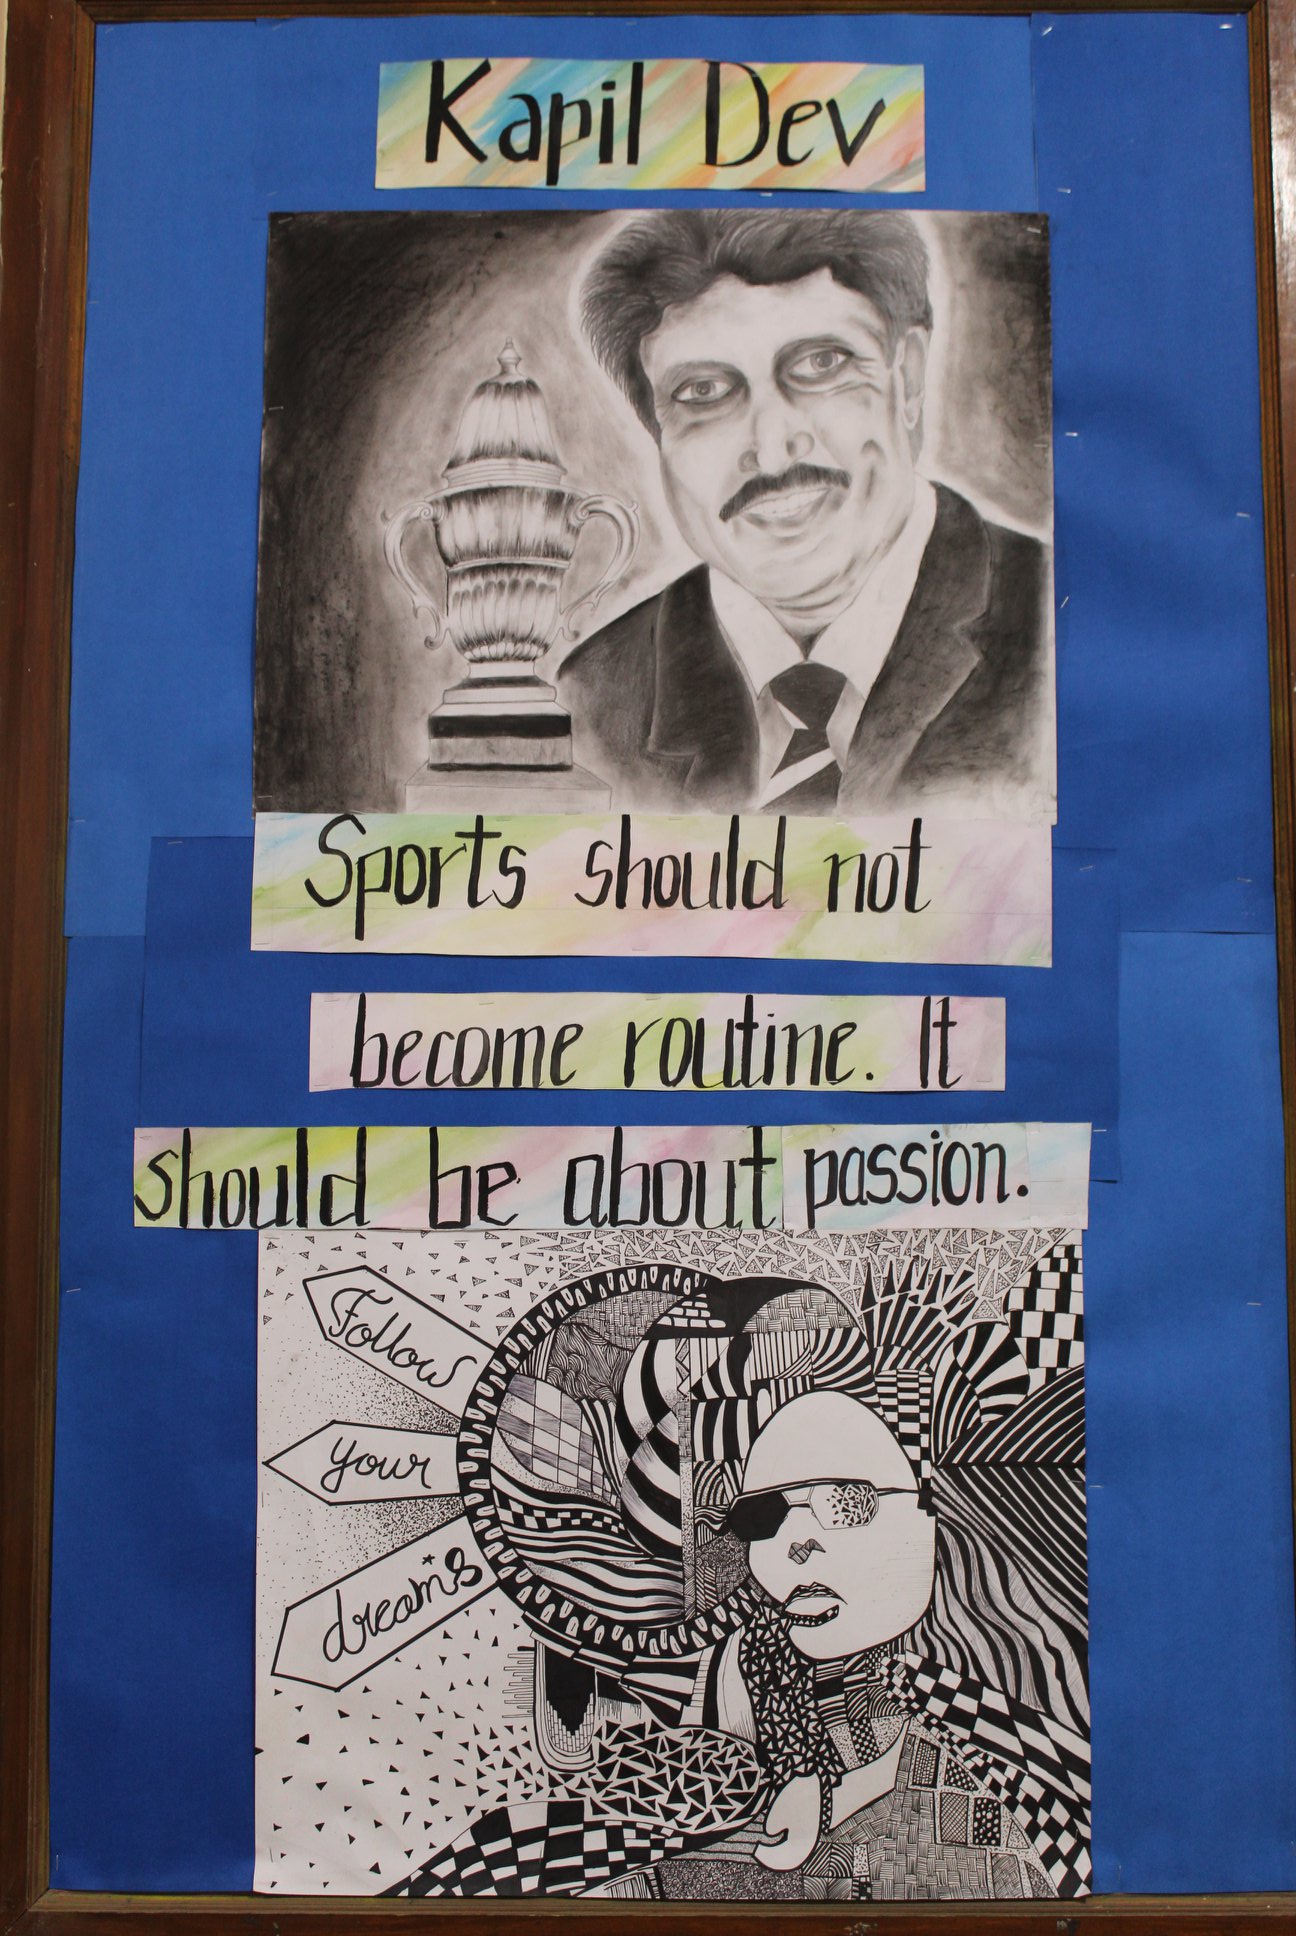 Kapil Dev
Sports should not
become routine. It
should be about passion.
Follow
your
dreams